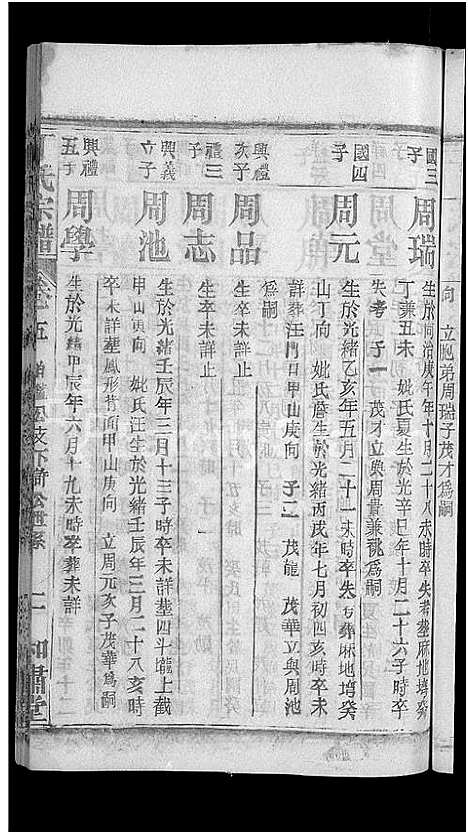 向 立胞弟周瑞子茂才爲嗣
國三子
周瑞
生於同治庚午年十月二十八未時卒失考塟麻地塆癸
丁兼丑未 妣氏夏生於光辛巳年十月二十六子時卒
失考 子一 茂才立與周 兼祧爲嗣
國四子
周元
生於光緒乙亥年五月二十一未時卒失 葬麻地塆癸
山丁向 妣氏詹生於光緒丙戌年七月初四亥時卒未
詳葬汪門口甲山庚向 子二 茂龍 茂華立與周池
爲嗣
興禮次子
周品
生卒未詳止
禮三子
周志
生卒未詳止
興義立子
周池
生於光緒壬辰年三月十三子時卒未詳塟四斗壠上截
甲山寅向 妣氏汪生於光緒壬辰年三月二十八亥時
卒未詳塟鳳形背面甲山庚向 立周元次子茂華爲嗣
興禮五子
周學
生於光緒甲辰年六月十九未時卒葬未詳
氏宗譜
卷之五
二